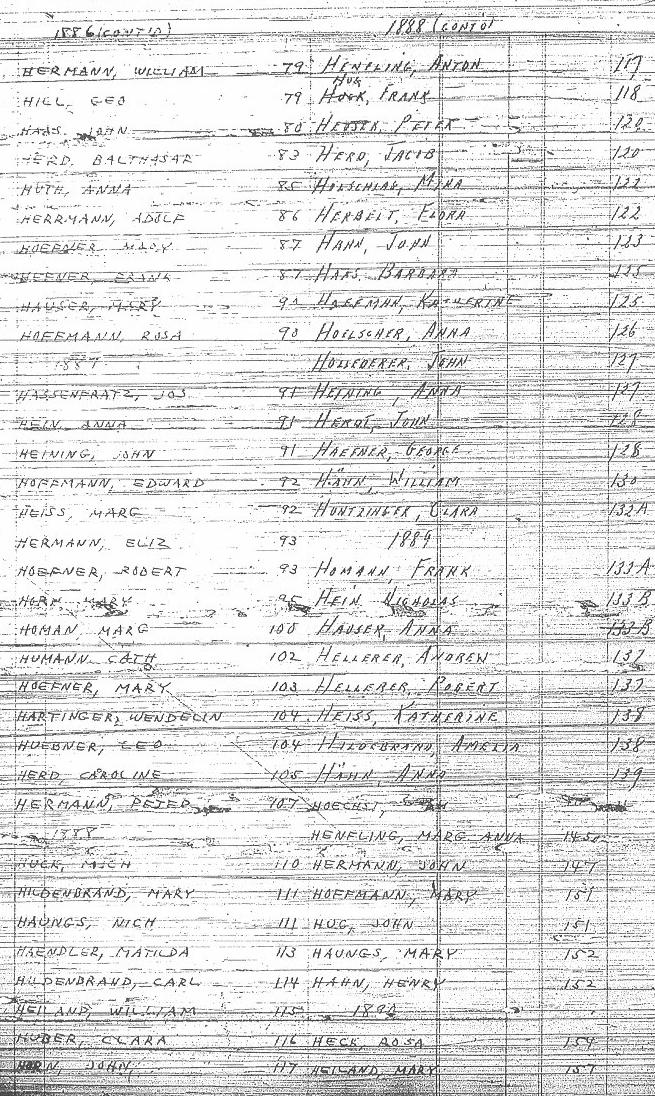 1886 (CONT'D)
HERMANN, WILLIAM 79
HILL, GEO 79
HAAS, JOHN 80
HERD, BALTHASAR 83
HUTH, ANNA 85
HERRMANN, ADOLF 86
HOEFNER, MARY 87
HEFNER, FRANK 87
HAUSER, MARY 90
HOFFMANN, ROSA 90
1887
HASSENFRATZ, JOS 91
HEIN, ANNA 91
HEINING, JOHN 91
HOFFMANN, EDWARD 92
HEISS, MARG 92
HERMANN, ELIZ 93
HOEFNER, ROBERT 93
HORN, MARY 95
HOMAN, MARG 100
HUMANN, CATH 102
HOEFNER, MARY 103
HARTINGER, WENDELIN 104
HUEBNER, LEO 104
HERD, CAROLINE 105
HERMANN, PETER 107
1888
HUCK, MICH 110
HILDENBRAND, MARY 111
HAUNGS, NICH 111
HAENDLER, MATILDA 113
HILDENBRAND, CARL 114
HEILAND, WILLIAM 115
HUBER, CLARA 116
HORN, JOHN, 117
1888 (CONT'D)
HENFLING, ANTON 117
HUG
HUCK, FRANK 118
HEUSER, PETER 120
HERD, JACOB 120
HOLSCHLAG, MINA 122
HERBELT, FLORA 122
HAHN, JOHN 123
HAAS, BARBARA 125
HOFFMAN, KATHERINE 125
HOELSCHER, ANNA 126
HOLLEDERER, JOHN 127
HEINING, ANNA 127
HEROT, JOHN 128
HAEFNER, GEORGE 128
HÄHN, WILLIAM 130
HUNTZINGER, CLARA 132A
1889
HOMANN, FRANK 133 A
HEIN, NICHOLAS 133 B
HAUSER, ANNA 133 B
HELLERER, ANDREW 137
HELLERER, ROBERT 137
HEISS, KATHERINE 138
HILDEBRAND, AMELIA 138
HÄHN, ANNA 139
HOECHST,
HENFLING, MARG ANNA 145
HERMANN, JOHN 147
HOFFMANN, MARY 151
HUG, JOHN 151
HAUNGS, MARY 152
HAHN, HENRY 152
HECK, ROSA 154
HEILAND, MARY 157